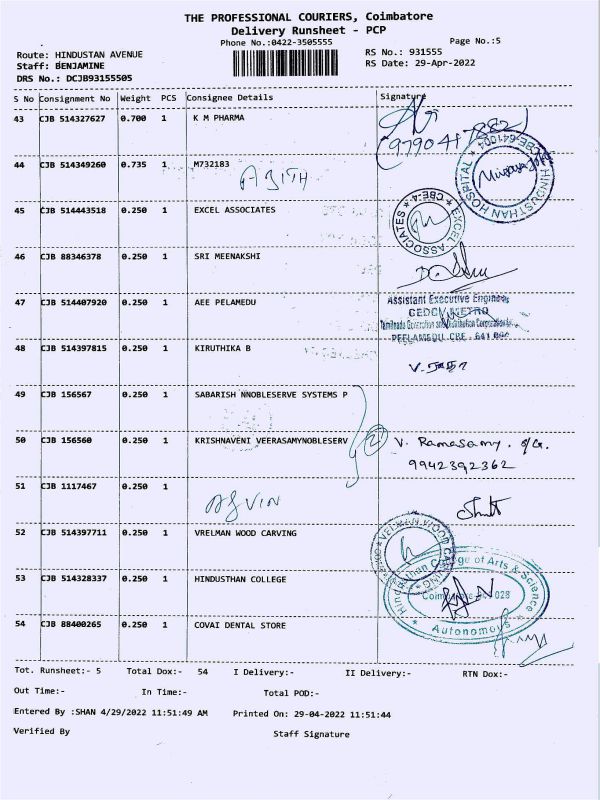 THE PROFESSIONAL COURIERS, Coimbatore
Delivery Runsheet - PCP
Phone No.:0422-3505555
Page No.:5
Route: HINDUSTAN AVENUE
RS No.: 931555
Staff: BENJAMINE
RS Date: 29-Apr-2022
DRS No.: DCJB93155505
S No Consignment No Weight PCS Consignee Details Signature
43 CJB 514327627 0.700 1 K M PHARMA
44 CJB 514349260 0.735 1 M732183
HINDUSTHAN HOSPITAL * CBE-641004
AJITH
45 CJB 514443518 0.250 1 EXCEL ASSOCIATES
EXCEL ASSOCIATES * CBE-4 *
46 CJB 88346378 0.250 1 SRI MEENAKSHI
47 CJB 514407920 0.250 1 AEE PELAMEDU
Assistant Executive Engineer
PEELAMEDU CBE - 641 004
48 CJB 514397815 0.250 1 KIRUTHIKA B
49 CJB 156567 0.250 1 SABARISH NNOBLESERVE SYSTEMS P
50 CJB 156560 0.250 1 KRISHNAVENI VEERASAMYNOBLESERV
2
V. Ramasamy. S/G.
9942392362
51 CJB 1117467 0.250 1
ASVIN
52 CJB 514397711 0.250 1 VRELMAN WOOD CARVING
53 CJB 514328337 0.250 1 HINDUSTHAN COLLEGE
Hindusthan College of Arts & Science
Coimbatore 641 028
* Autonomous *
54 CJB 88400265 0.250 1 COVAI DENTAL STORE
Tot. Runsheet:- 5 Total Dox:- 54 I Delivery:- II Delivery:- RTN Dox:-
Out Time:- In Time:- Total POD:-
Entered By :SHAN 4/29/2022 11:51:49 AM Printed On: 29-04-2022 11:51:44
Verified By Staff Signature